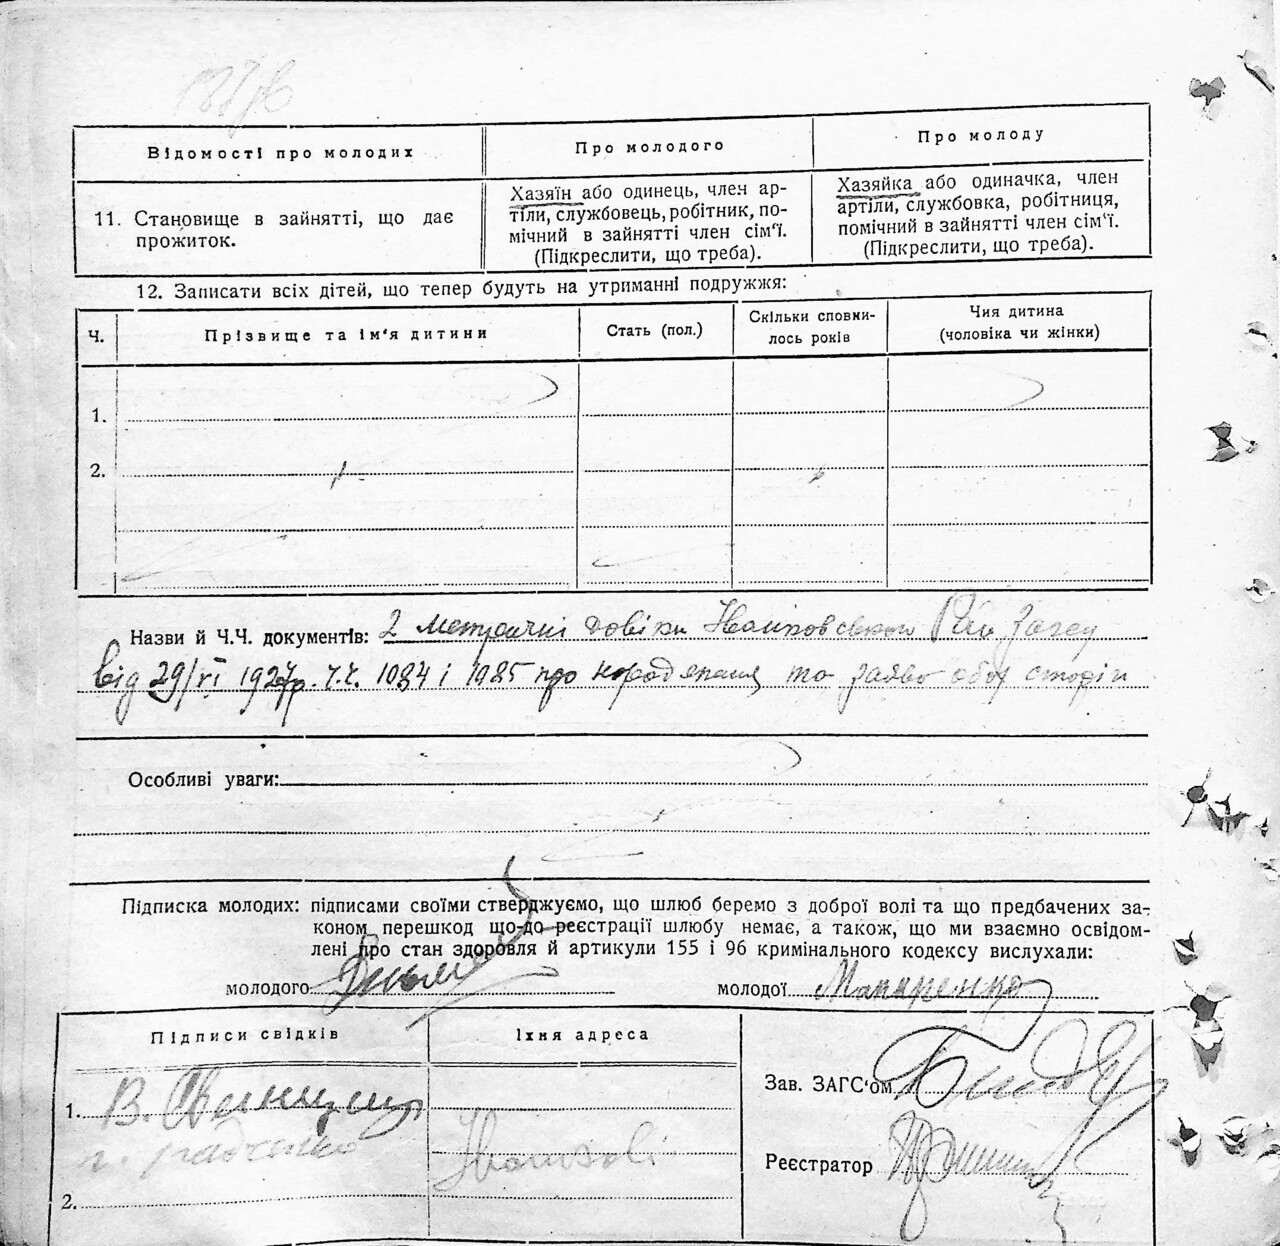 Відомості про молодих
Про молодого
Про молоду
11. Становище в зайнятті, що дає
прожиток.
Хазяїн або одинець, член ар-
тіли, службовець, робітник, по-
мічний в зайнятті член сім'ї.
(Підкреслити, що треба).
Хазяйка або одиначка, член
артіли, службовка, робітниця,
помічний в зайнятті член сім'ї.
(Підкреслити, що треба).
12. Записати всіх дітей, що тепер будуть на утриманні подружжя:
Ч.
Прізвище та ім'я дитини
Стать (пол.)
Скільки сповни-
лось років
Чия дитина
(чоловіка чи жінки)
1.
2.
Назви й Ч.Ч. документів: 2 метричні довіки Іванковського Рай Загсу
від 29/VI 1927р. ч.ч. 1084 і 1985 про народження та заява обох сторін
Особливі уваги:
Підписка молодих: підписами своїми стверджуємо, що шлюб беремо з доброї волі та що предбачених за-
коном перешкод що-до реєстрації шлюбу немає, а також, що ми взаємно освідом-
лені про стан здоровля й артикули 155 і 96 кримінального кодексу вислухали:
молодого
молодої Макаренко
Підписи свідків
Їхня адреса
1. В.
Зав. ЗАГС'ом
Г. Радченко
Іванков
Реєстратор
2.